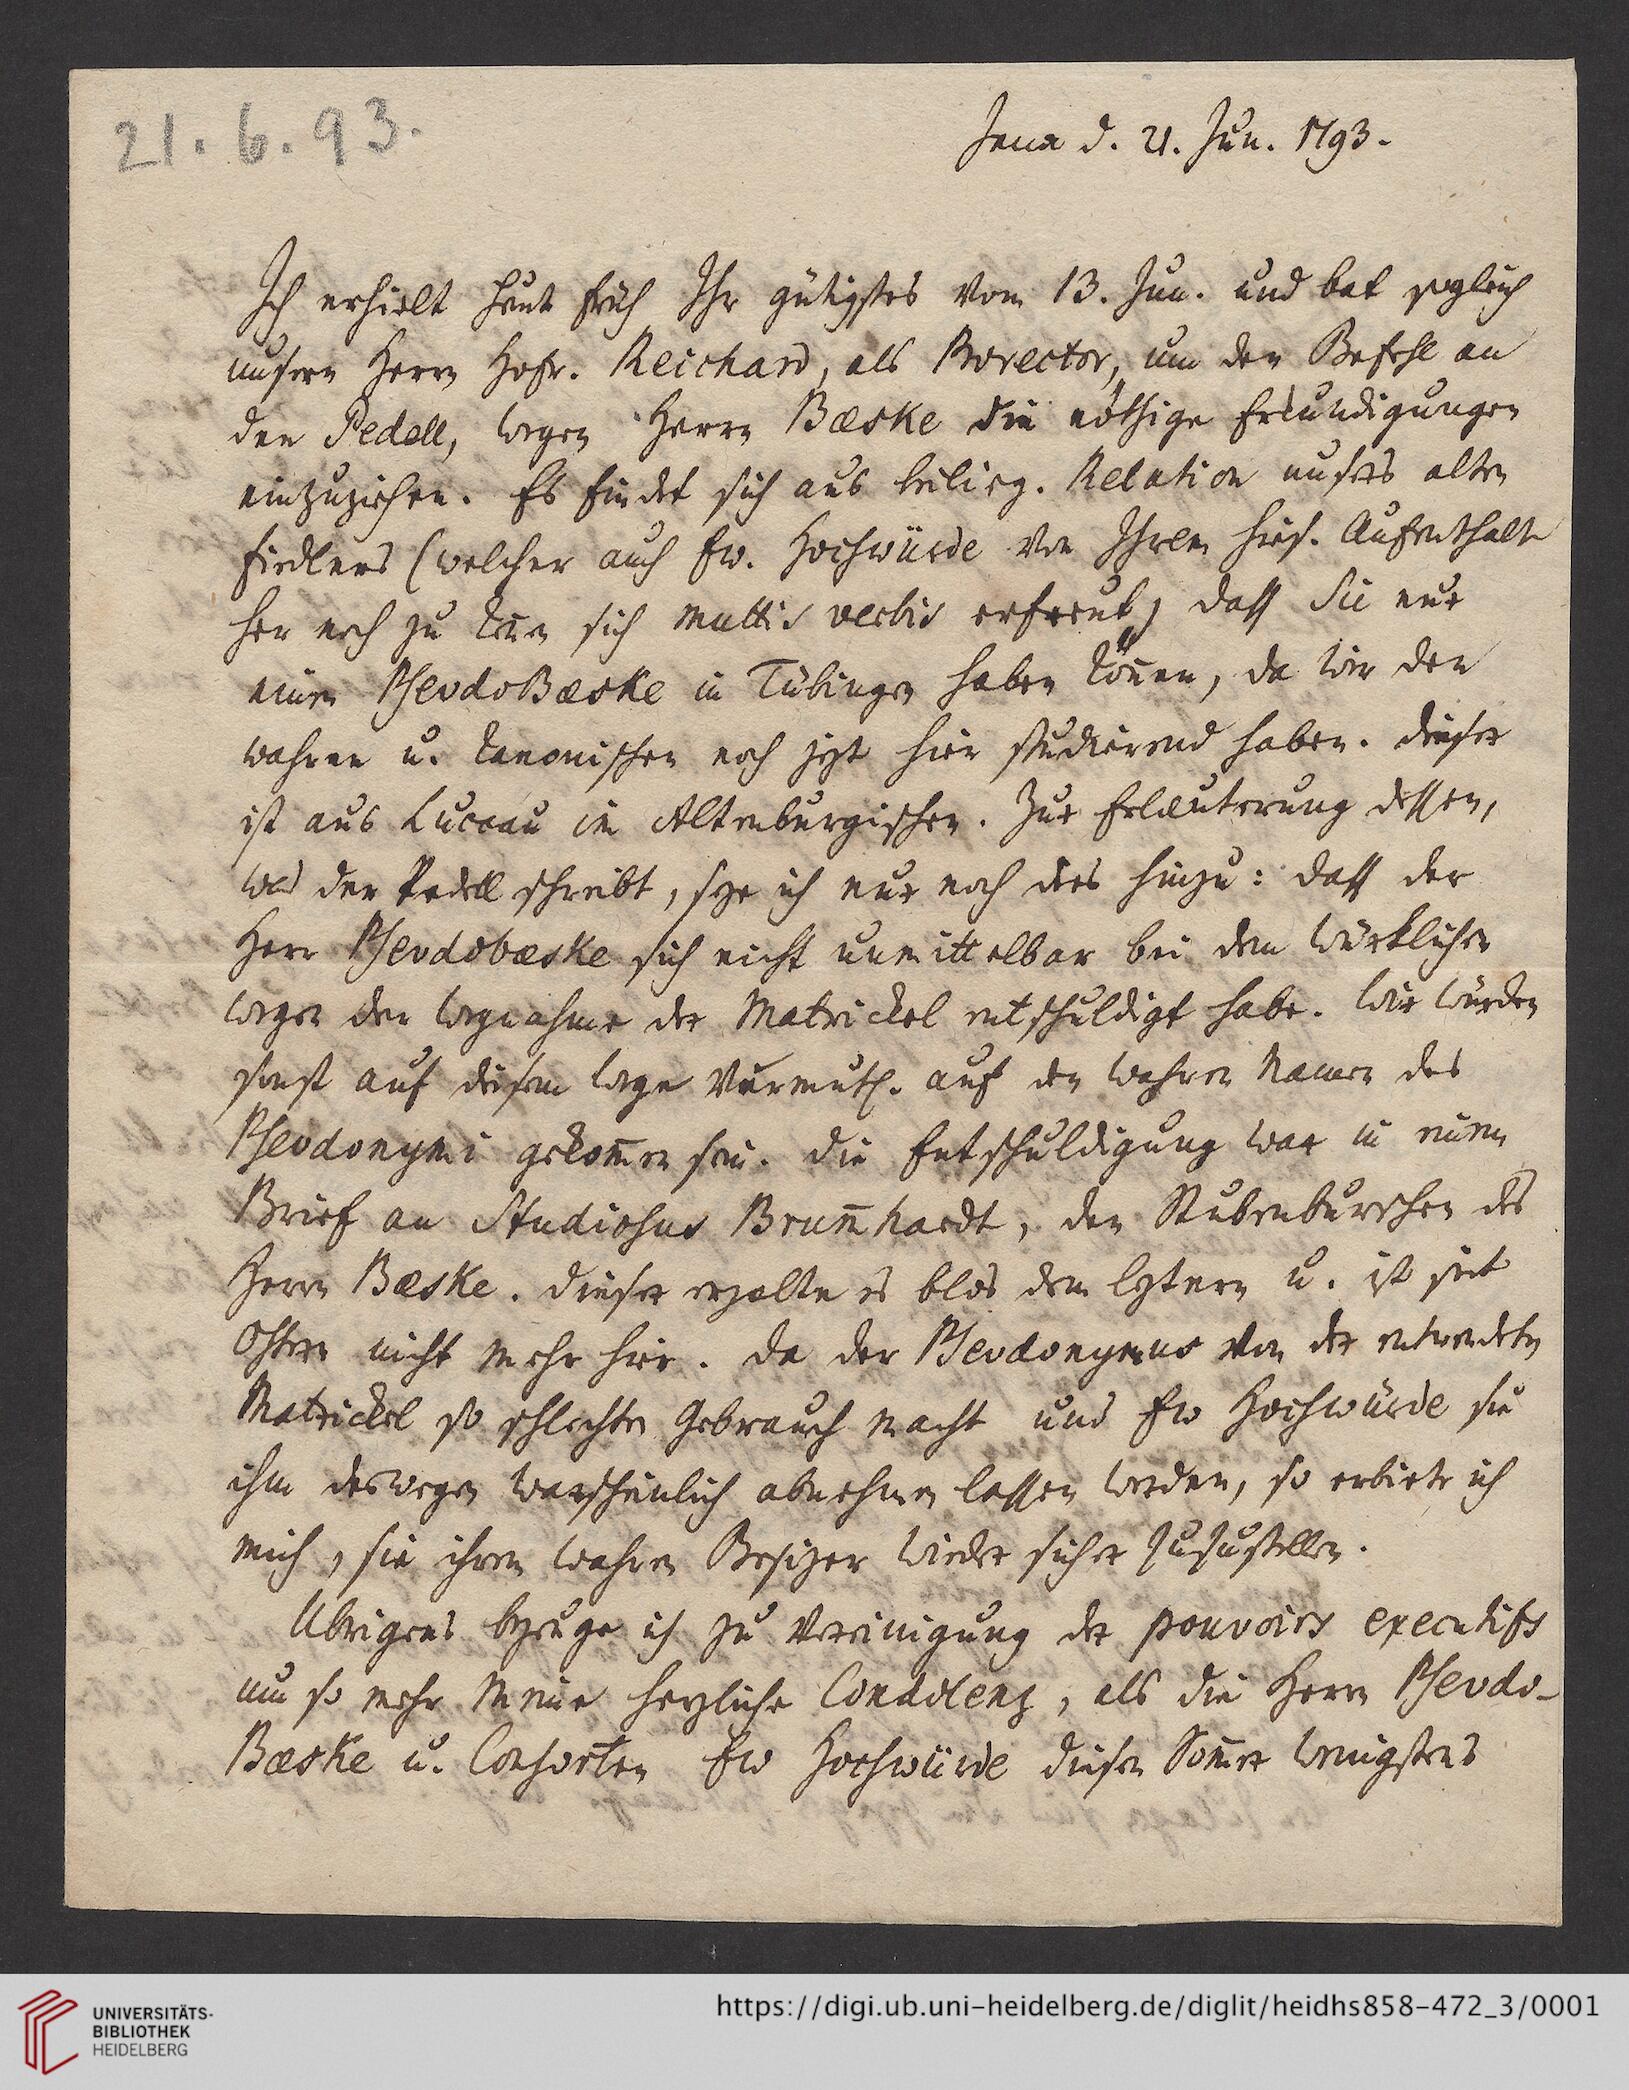 21. 6. 93.
Jena d. 21. Jun. 1793.
Ich erhielt heut früh Ihr gütigstes vom 13. Jun. und bat sogleich
unsern Herrn Hofr. Reichard, als Prorector, um den Befehl an
den Pedell, wegen Herrn Bæske die nöthige Erkundigungen
einzuziehen. Es findet sich aus beilieg. Relation unsers alten
Fiedlers (welcher auch Ew. Hochwürde von Ihrem hies. Aufenthalte
her noch zu kenn̄en sich multis verbis erfreut) dass Sie nur
einen PsevdoBæske in Tübingen haben kön̄en, da wir den
wahren u. kanonischen noch jezt hier studierend haben. Dieser
ist aus Luccau im Altenburgischen. Zur Erlæuterung dessen,
was der Pedell schreibt, seze ich nur noch dies hinzu: dass der
Herr Psevdobæske sich nicht unmittelbar bei dem würklichen
wegen der Wegnahme der Matrickel entschuldigt habe. Wir würden
sonst auf diesem Wege vermuthl. auf den wahren Namen des
Psevdonymi gekom̄en sein. Die Entschuldigung war in einem
Brief an Studiosus Brum̄hardt, den Stubenburschen des
Herrn Bæske. Dieser erzalte es blos dem leztern u. ist seit
Ostern nicht mehr hier. Da der Psevdonymus von der entwendeten
Matrickel so schlechten Gebrauch macht und Ew Hochwürde sie
ihm deswegen warscheinlich abnehmen lassen werden, so erbiete ich
mich, sie ihrem wahren Besizer wieder sicher zuzustellen.
Übrigens bezeuge ich zu Vereinigung der pouvoirs executifs
um so mehr meine herzliche Condolenz, als die Herrn Psevdo-
Bæske u. Consorten Ew Hochwürde diesen Som̄er wenigstens
UNIVERSITÄTS-
BIBLIOTHEK
HEIDELBERG
https://digi.ub.uni-heidelberg.de/diglit/heidhs858-472_3/0001